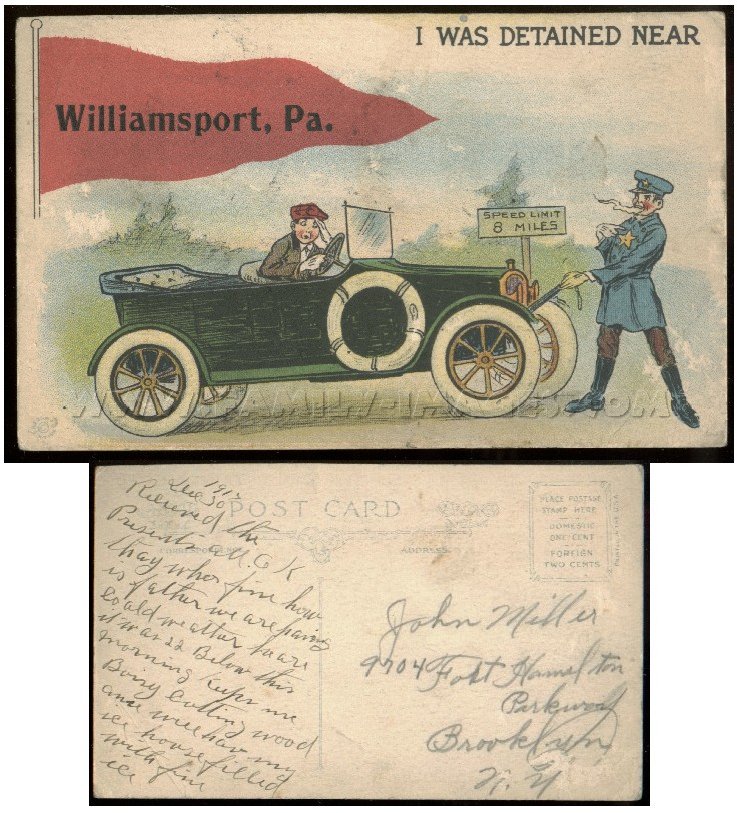 I WAS DETAINED NEAR
Williamsport, Pa.
SPEED LIMIT
8 MILES
POST CARD
CORRESPONDENCE
ADDRESS
PLACE POSTAGE
STAMP HERE
DOMESTIC
ONE CENT
FOREIGN
TWO CENTS
PRINTED IN THE U.S.A.
Dec 30
Recieved the
Presents all O K
thay whor fine how
is father we are having
Could weatter heare
it was 22 Below this
morning Keeps me
Boisy Cutting wood
and will have my
ice house filled
with fine
ice
John Miller
9704 Fort Hamelton
Parkway
Brooklyn
N. Y